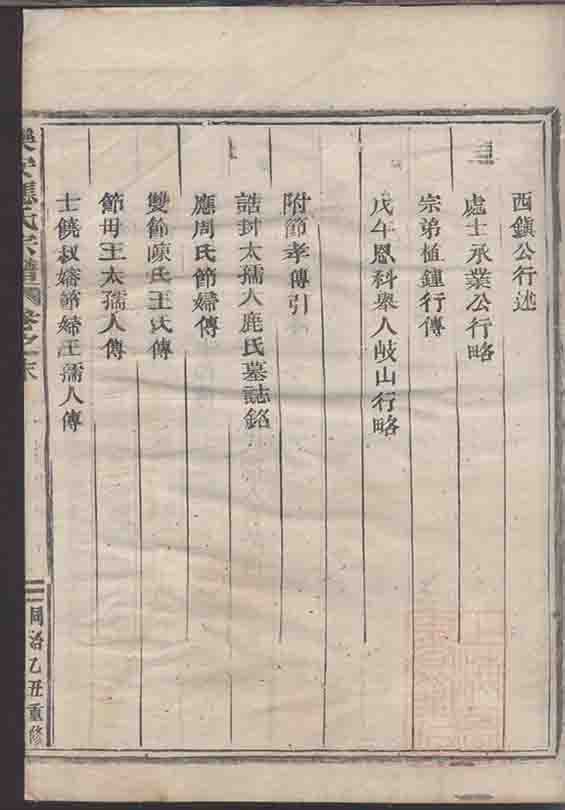 西鎮公行述
處士承業公行略
宗弟植鐘行傳
戊午恩科舉人岐山行略
附節孝傳引
誥封太孺人鹿氏墓誌銘
應周氏節婦傳
雙節陳氏王氏傳
節母王太孺人傳
士饒叔嬸節婦王孺人傳
氏宗譜 卷之末
同治乙丑重修